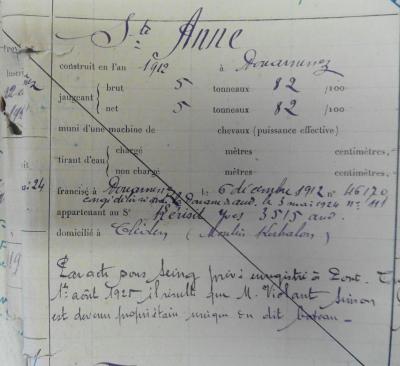 Ste Anne
construit en l'an 1912 à Douarnenez
jaugeant
brut 5 tonneaux 82 /100
net 5 tonneaux 82 /100
muni d'une machine de chevaux (puissance effective)
tirant d'eau
chargé mètres centimètres,
non chargé mètres centimètres,
francisé à Douarnenez le 6 décembre 1912 n° 46170
congé délivré Douane d'Aud. le 3 mai 1924 n° 111
appartenant au Sr Kérisit Yves 3515 aud.
domicilié à Cléden (Moulin Kerhalon)
Par acte sous seing privé enregistré à Pont-
1er août 1925, il résulte que M. Violant Simon
est devenu propriétaire unique du dit bateau -